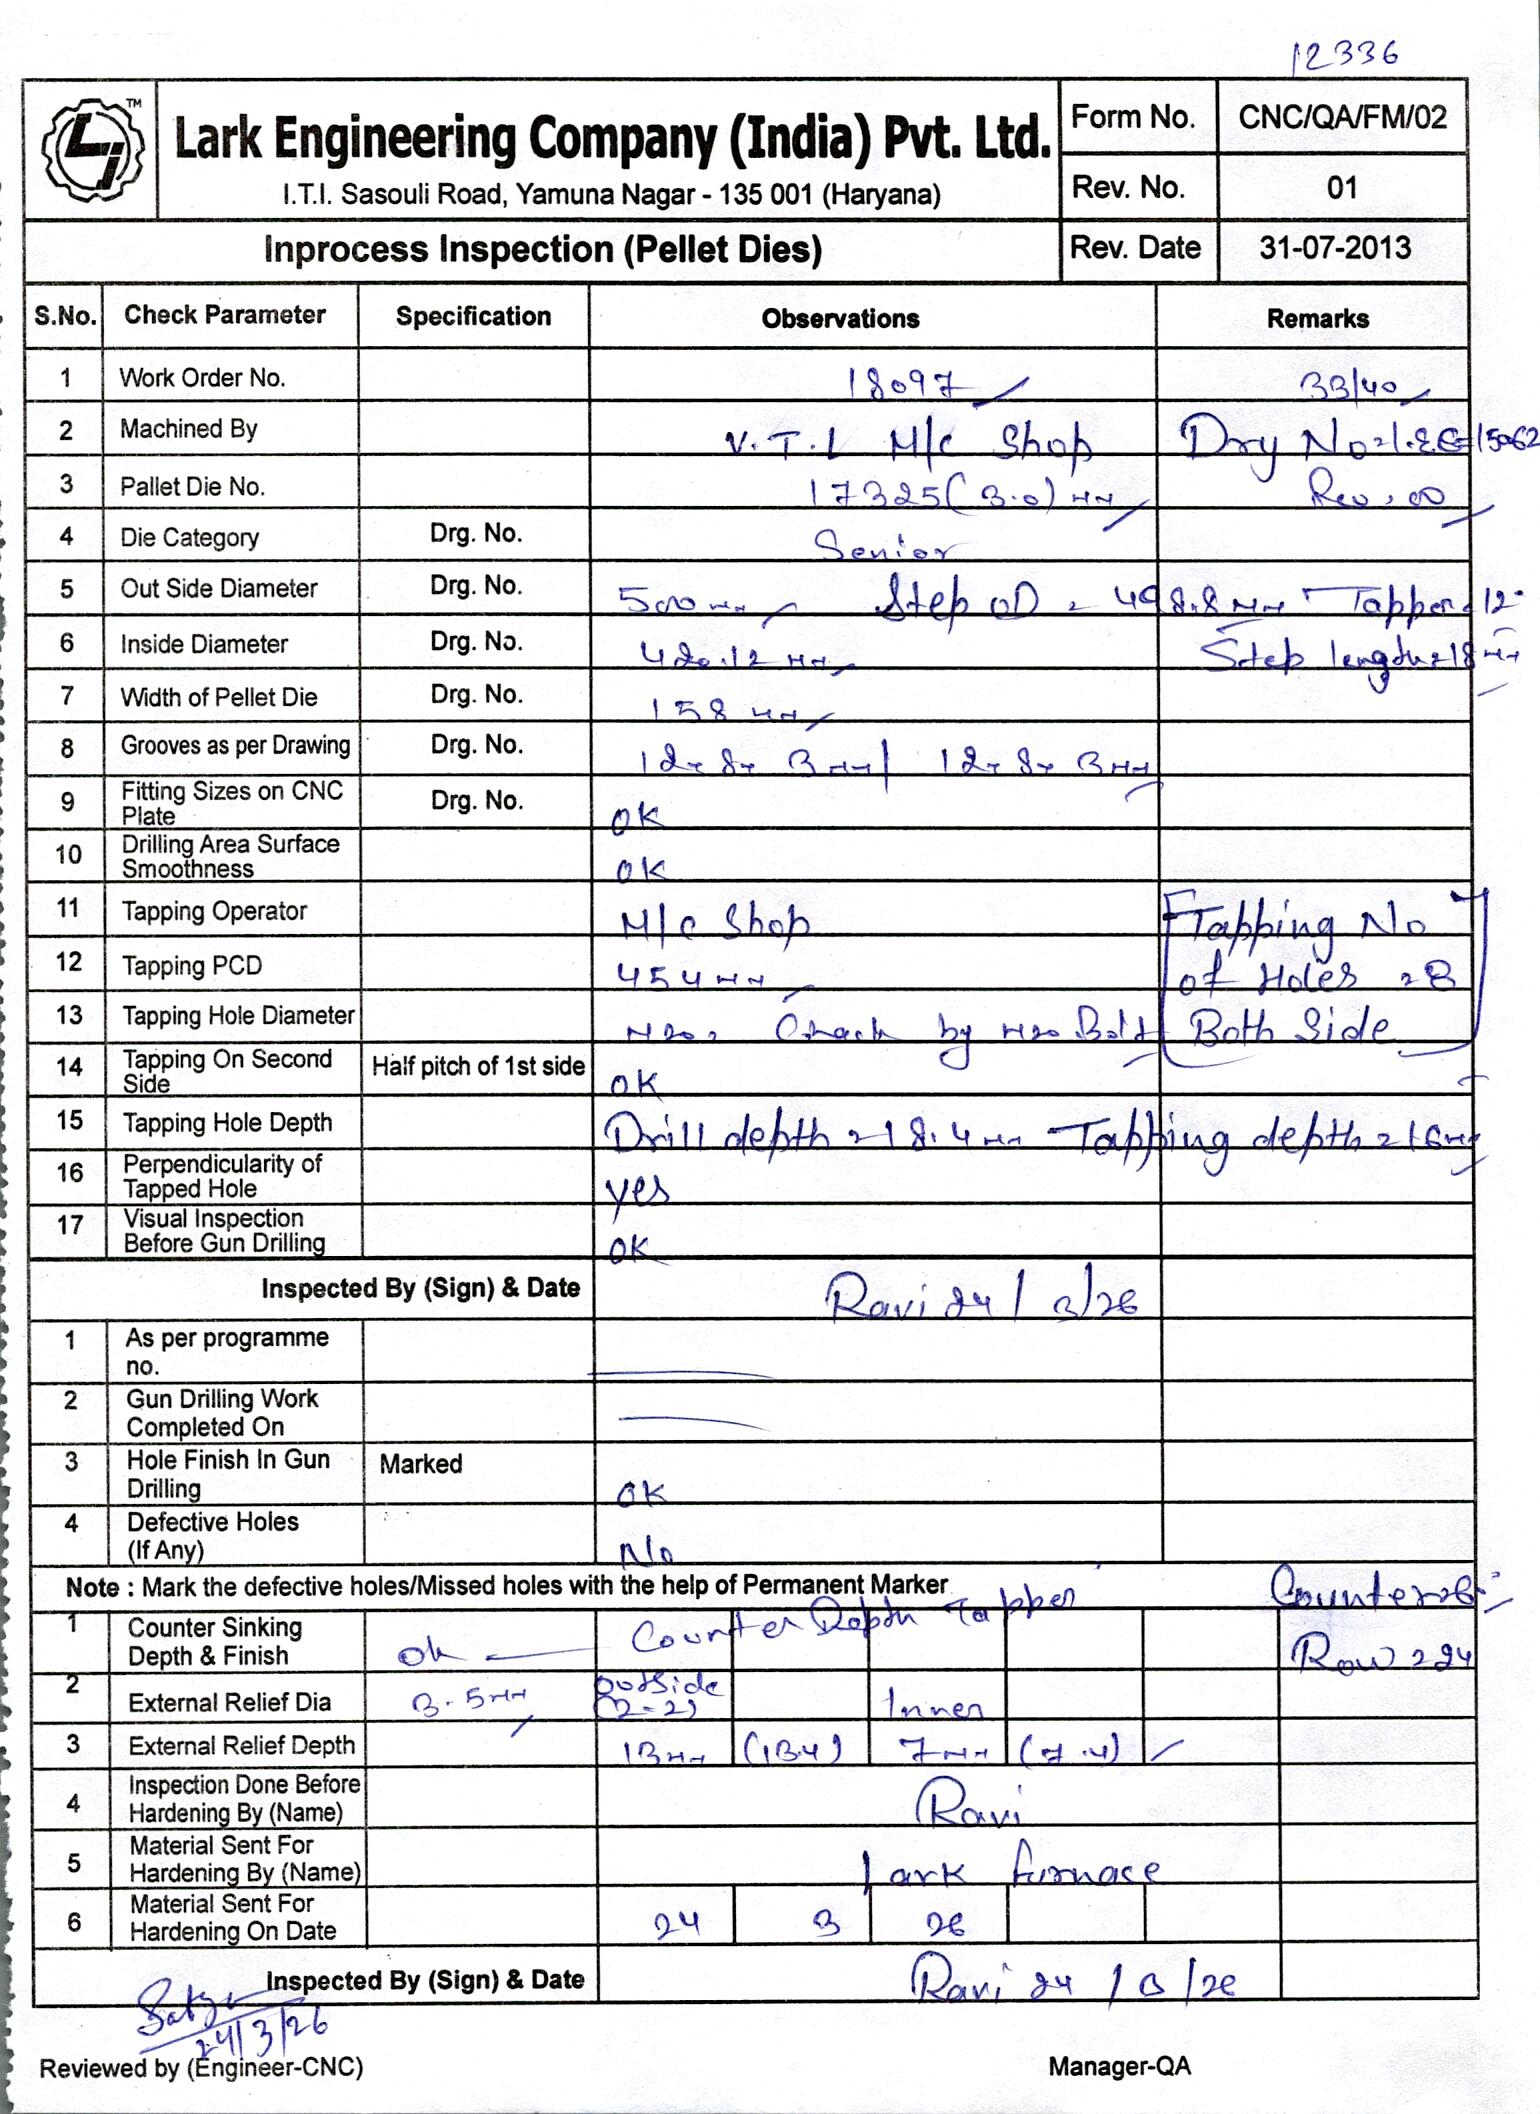 12336
Lark Engineering Company (India) Pvt. Ltd.
I.T.I. Sasouli Road, Yamuna Nagar - 135 001 (Haryana)
Form No. CNC/QA/FM/02
Rev. No. 01
Inprocess Inspection (Pellet Dies) Rev. Date 31-07-2013
S.No. Check Parameter Specification Observations Remarks
1 Work Order No. 18097 33/40
2 Machined By V.T.L M/C Shop Dry No
3 Pallet Die No. 17325 (3.0) mm Rev. 00
4 Die Category Drg. No. Senior
5 Out Side Diameter Drg. No. 500 mm Step OD = 498.8 mm Tapper = 12°
6 Inside Diameter Drg. No. 420.12 mm Step length = 18 mm
7 Width of Pellet Die Drg. No. 158 mm
8 Grooves as per Drawing Drg. No. 12x8x3mm / 12x8x3mm
9 Fitting Sizes on CNC Plate Drg. No. OK
10 Drilling Area Surface Smoothness OK
11 Tapping Operator M/C Shop Tapping No
12 Tapping PCD 454 mm of Holes = 8
13 Tapping Hole Diameter M20, Check by M20 Bolt Both Side
14 Tapping On Second Side Half pitch of 1st side OK
15 Tapping Hole Depth Drill depth = 18.4 mm Tapping depth = 16 mm
16 Perpendicularity of Tapped Hole yes
17 Visual Inspection Before Gun Drilling OK
Inspected By (Sign) & Date Ravi 24/3/26
1 As per programme no.
2 Gun Drilling Work Completed On
3 Hole Finish In Gun Drilling Marked OK
4 Defective Holes (If Any) No
Note : Mark the defective holes/Missed holes with the help of Permanent Marker
1 Counter Sinking Depth & Finish ok Counter Depth Tapper Row = 24
2 External Relief Dia 3.5mm outside (2-2) Inner
3 External Relief Depth 13mm (13.4) 7mm (7.4)
4 Inspection Done Before Hardening By (Name) Ravi
5 Material Sent For Hardening By (Name) Lark furnace
6 Material Sent For Hardening On Date 24 3 26
Inspected By (Sign) & Date Ravi 24/3/26
24/3/26
Reviewed by (Engineer-CNC) Manager-QA